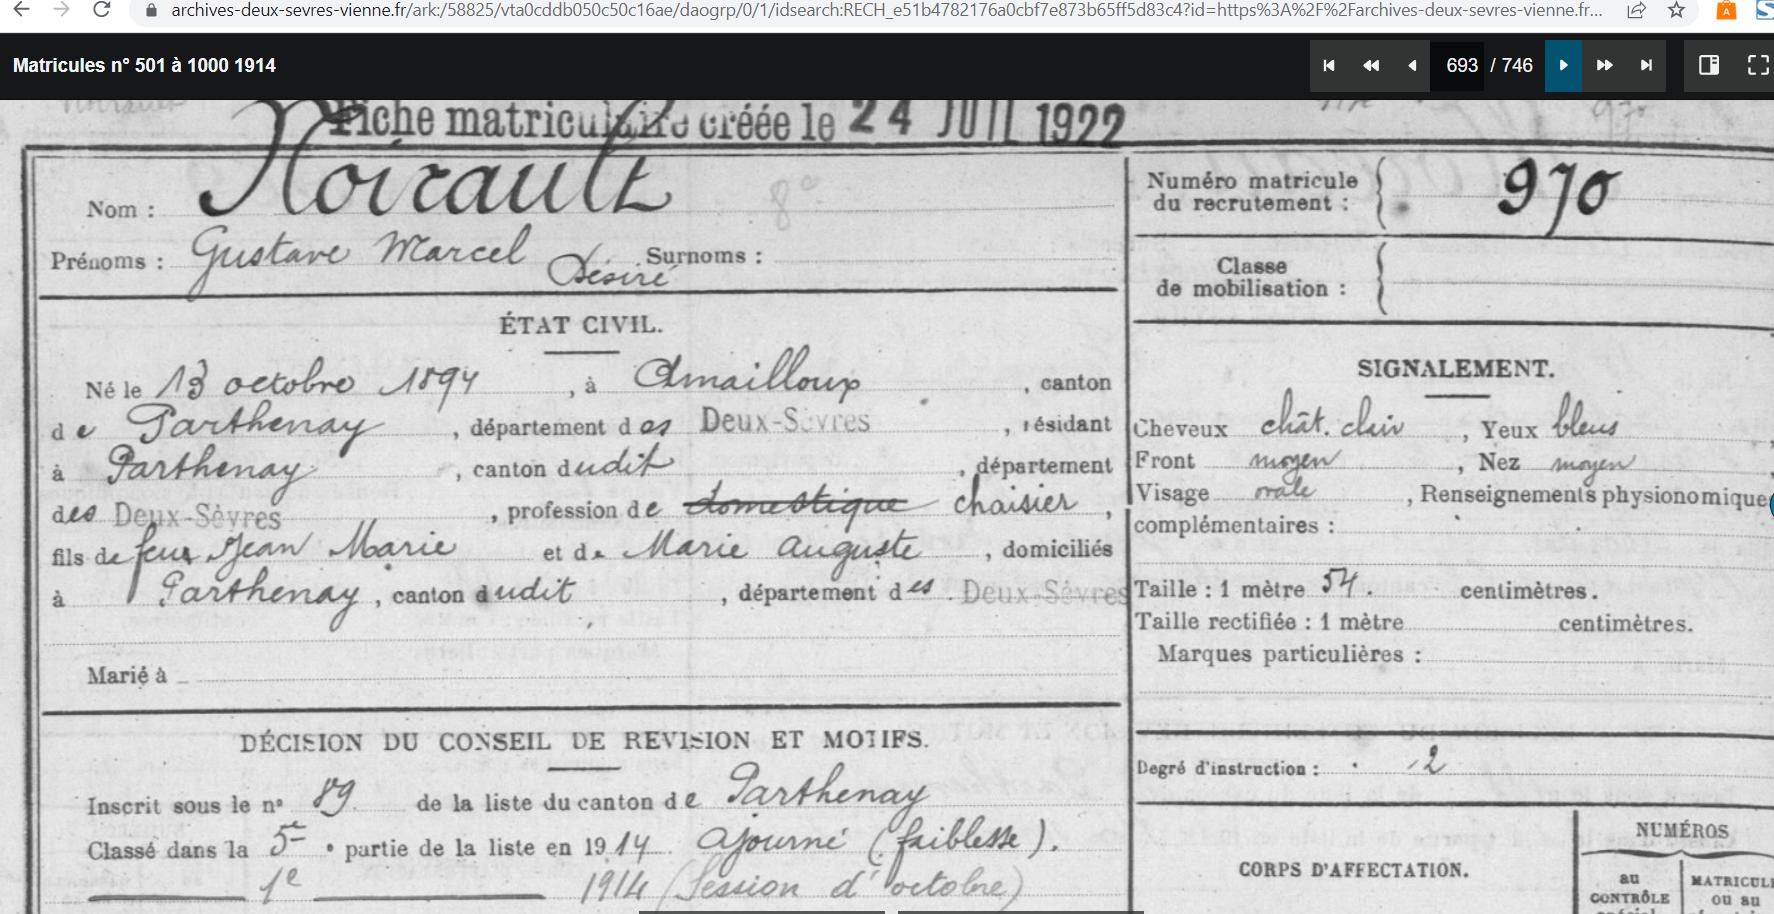 archives-deux-sevres-vienne.fr/ark:/58825/vta0cddb050c50c16ae/daogrp/0/1/idsearch:RECH_e51b4782176a0cbf7e873b65ff5d83c4?id=https%3A%2F%2Farchives-deux-sevres-vienne.fr...
Matricules n° 501 à 1000 1914
693 / 746
Fiche matriculaire créée le 24 JUIL 1922
Nom : Noirault
8e
Prénoms : Gustave Marcel Désiré Surnoms :
ÉTAT CIVIL.
Né le 13 octobre 1894, à Amailloux, canton
de Parthenay, département des Deux-Sèvres, résidant
à Parthenay, canton dudit, département
des Deux-Sèvres, profession de domestique chaisier,
fils de feu Jean Marie et de Marie Auguste, domiciliés
à Parthenay, canton dudit, département des Deux-Sèvres
Marié à
DÉCISION DU CONSEIL DE REVISION ET MOTIFS.
Inscrit sous le n° 89 de la liste du canton de Parthenay
Classé dans la 5e partie de la liste en 1914 ajourné (faiblesse).
1e 1914 (Session d'octobre)
970
Numéro matricule
du recrutement : 970
Classe
de mobilisation :
SIGNALEMENT.
Cheveux chât. clair, Yeux bleus
Front moyen, Nez moyen
Visage ovale, Renseignements physionomique
complémentaires :
Taille : 1 mètre 54. centimètres.
Taille rectifiée : 1 mètre centimètres.
Marques particulières :
Degré d'instruction : 2
CORPS D'AFFECTATION.
NUMÉROS
au
CONTRÔLE
spécial
MATRICULE
ou au